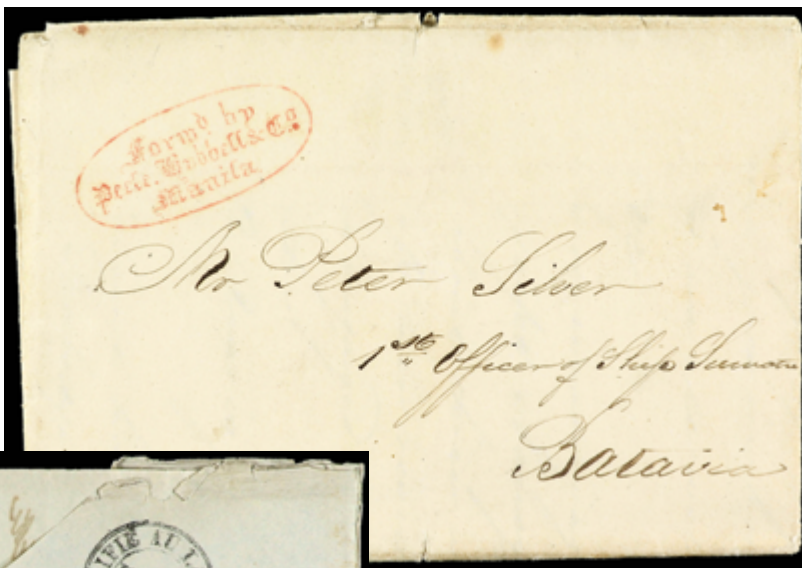 Forwd by
Peele, Hubbell & Co
Manila
Mr Peter Silver
1st Officer of Ship Sumatra
Batavia
IFIÉ AU L